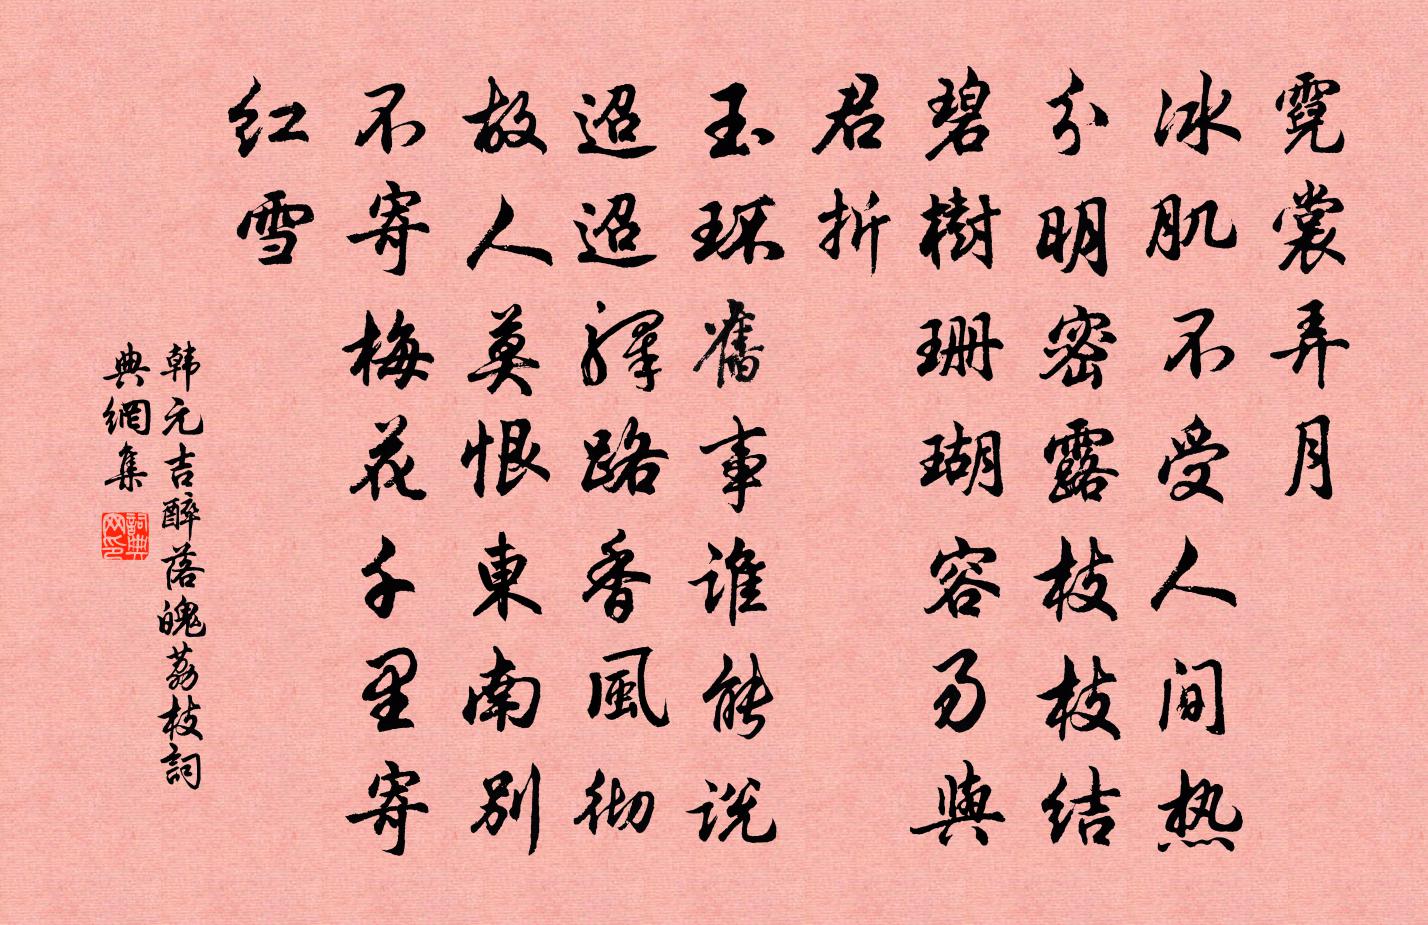 霓裳弄月
冰肌不受人间热
分明密露枝枝结
碧樹珊瑚容易與
君折
玉环舊事谁能说
迢迢驿路香風彻
故人莫恨東南别
不寄梅花千里寄
红雪
韩元吉醉落魄荔枝詞
典網集
詞典网印